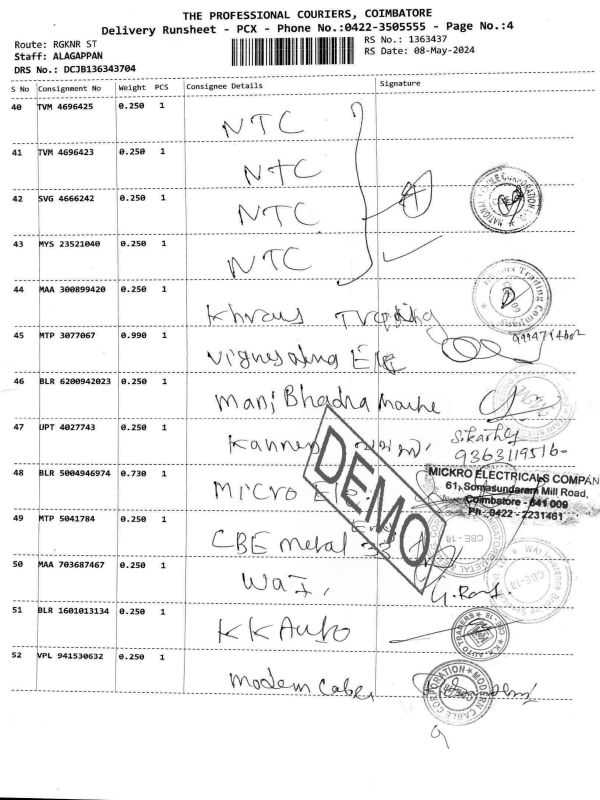 THE PROFESSIONAL COURIERS, COIMBATORE
Delivery Runsheet - PCX - Phone No.:0422-3505555 - Page No.:4
Route: RGKNR ST
RS No.: 1363437
Staff: ALAGAPPAN
RS Date: 08-May-2024
DRS No.: DCJB136343704
S No Consignment No Weight PCS Consignee Details Signature
40 TVM 4696425 0.250 1
NTC
41 TVM 4696423 0.250 1
NTC
42 SVG 4666242 0.250 1
NTC
43 MYS 23521040 0.250 1
NTC
44 MAA 300899420 0.250 1
45 MTP 3077067 0.990 1
46 BLR 6200942023 0.250 1
Mani Bhadra
47 UPT 4027743 0.250 1
9363119516
48 BLR 5004946974 0.730 1
MICRO Ele.
MICKRO ELECTRICALS COMPAN
61, Somasundaram Mill Road,
Coimbatore - 641 009
Ph: 0422 - 2231461
DEMO
49 MTP 5041784 0.250 1
CBE metal
CBE-18
50 MAA 703687467 0.250 1
CBE-18
51 BLR 1601013134 0.250 1
KK Auto
52 VPL 941530632 0.250 1
modern cable
MODERN CABLE CORPORATION